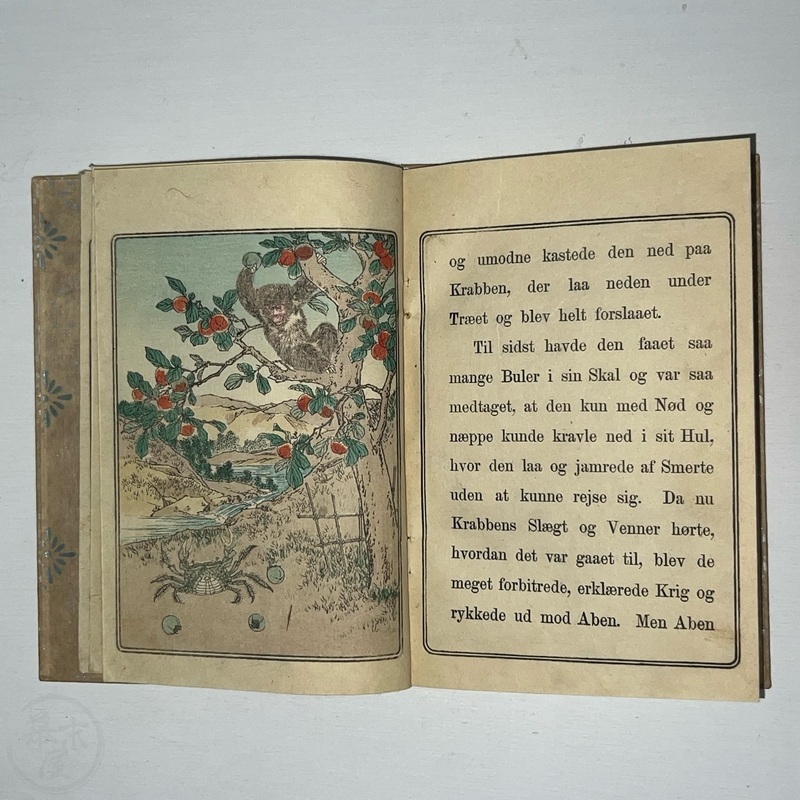 og umodne kastede den ned paa
Krabben, der laa neden under
Træet og blev helt forslaaet.
Til sidst havde den faaet saa
mange Buler i sin Skal og var saa
medtaget, at den kun med Nød og
næppe kunde kravle ned i sit Hul,
hvor den laa og jamrede af Smerte
uden at kunne rejse sig. Da nu
Krabbens Slægt og Venner hørte,
hvordan det var gaaet til, blev de
meget forbitrede, erklærede Krig og
rykkede ud mod Aben. Men Aben